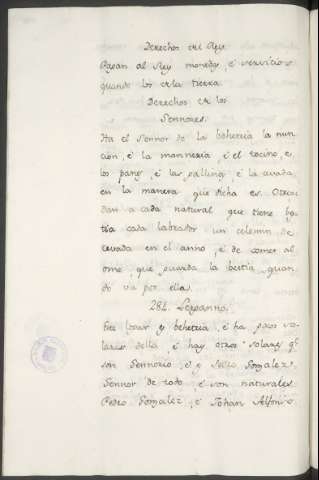 Derechos del Rey
Pagan al Rey monedas, é servicios
quando los de la tierra.
Derechos de los
Sennores.
Ha el Sennor de la behetria la nun
cion, é la manneria, é el tocino, e
los panes, é las gallinas, é la cevada
en la manera que dicha es. Otrosi
dan a cada natural que tiene bes
tia cada labrador un celemin de
cevada en el anno, é de comer al
ome, que guarda la bestia quan
do va por ella.
284. Lessanno.
Este logar es behetria, é ha pocos so
lares della é hay otros solares que
son Sennorio, é es Pedro Gonzalez
Sennor de todo, é son naturales
Pedro Gonzalez, é Johan Alfonso